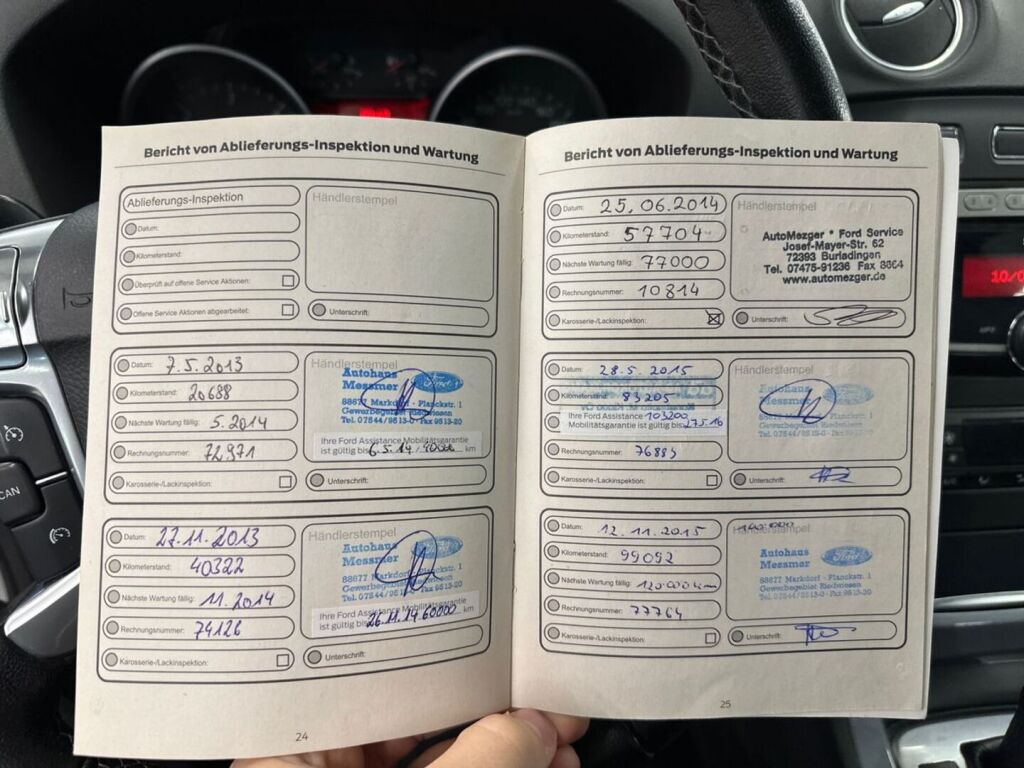 Bericht von Ablieferungs-Inspektion und Wartung
Ablieferungs-Inspektion
Händlerstempel
Datum:
Kilometerstand:
Überprüft auf offene Service Aktionen:
Offene Service Aktionen abgearbeitet:
Unterschrift:
Datum: 7.5.2013
Kilometerstand: 20688
Nächste Wartung fällig: 5.2014
Rechnungsnummer: 72971
Karosserie-/Lackinspektion:
Händlerstempel
Autohaus
Messmer
Ford
88677 Markdorf - Planckstr. 1
Gewerbegebiet Riedwiesen
Tel. 07544/9513-0 - Fax 9513-20
Ihre Ford Assistance Mobilitätsgarantie
ist gültig bis 6.5.14 / 40000 km
Unterschrift:
Datum: 27.11.2013
Kilometerstand: 40322
Nächste Wartung fällig: 11.2014
Rechnungsnummer: 74126
Karosserie-/Lackinspektion:
Händlerstempel
Autohaus
Messmer
Ford
88677 Markdorf - Planckstr. 1
Gewerbegebiet Riedwiesen
Tel. 07544/9513-0 - Fax 9513-20
Ihre Ford Assistance Mobilitätsgarantie
ist gültig bis 26.11.14 60000 km
Unterschrift:
24
Bericht von Ablieferungs-Inspektion und Wartung
Datum: 25.06.2014
Kilometerstand: 57704
Nächste Wartung fällig: 77000
Rechnungsnummer: 10814
Karosserie-/Lackinspektion:
Händlerstempel
AutoMezger * Ford Service
Josef-Mayer-Str. 62
72393 Burladingen
Tel. 07475-91236 Fax 8864
www.automezger.de
Unterschrift:
Datum: 28.5.2015
Kilometerstand: 83205
Ihre Ford Assistance 103200
Mobilitätsgarantie ist gültig bis 27.5.16
Rechnungsnummer: 76883
Karosserie-/Lackinspektion:
Händlerstempel
Autohaus
Messmer
Ford
88677 Markdorf - Planckstr. 1
Gewerbegebiet Riedwiesen
Tel. 07544/9513-0 - Fax 9513-20
Unterschrift:
Datum: 12.11.2015
Kilometerstand: 99092
Nächste Wartung fällig: 120000 km
Rechnungsnummer: 77764
Karosserie-/Lackinspektion:
Händlerstempel
Autohaus
Messmer
Ford
88677 Markdorf - Planckstr. 1
Gewerbegebiet Riedwiesen
Tel. 07544/9513-0 - Fax 9513-20
Unterschrift:
25
CAN
10/0